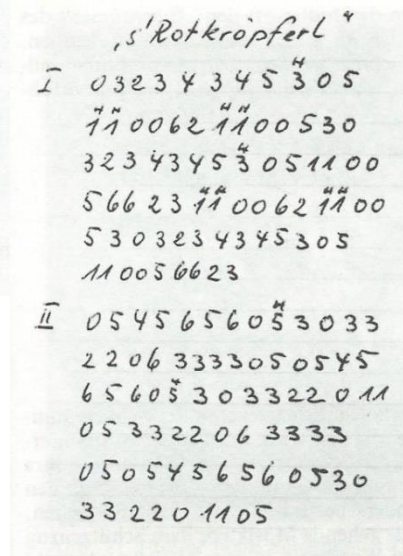 's' Rotkröpferl "
I 0 3 2 3 4 3 4 5 3 0 5
1 1 0 0 6 2 1 1 0 0 5 3 0
3 2 3 4 3 4 5 3 0 5 1 1 0 0
5 6 6 2 3 1 1 0 0 6 2 1 1 0 0
5 3 0 3 2 3 4 3 4 5 3 0 5
1 1 0 0 5 6 6 2 3
II 0 5 4 5 6 5 6 0 5 3 0 3 3
2 2 0 6 3 3 3 3 0 5 0 5 4 5
6 5 6 0 5 3 0 3 3 2 2 0 1 1
0 5 3 3 2 2 0 6 3 3 3 3
0 5 0 5 4 5 6 5 6 0 5 3 0
3 3 2 2 0 1 1 0 5